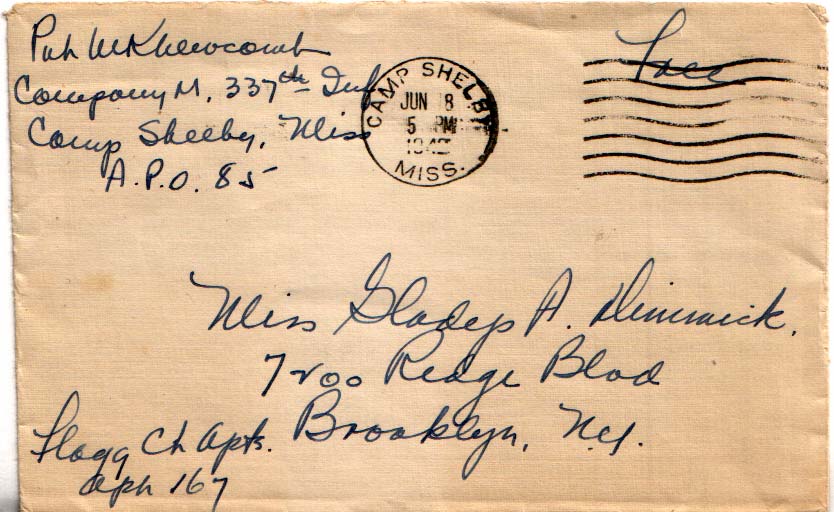 Pvt W K Newcomb
Company M, 337th Inf
Camp Shelby, Miss
A.P.O. 85
CAMP SHELBY
JUN 8
5 PM
1942
MISS.
Free
Miss Gladys A. Dimmick,
7200 Ridge Blvd
Brooklyn, N.Y.
Flagg Ct Apts.
Apt 167